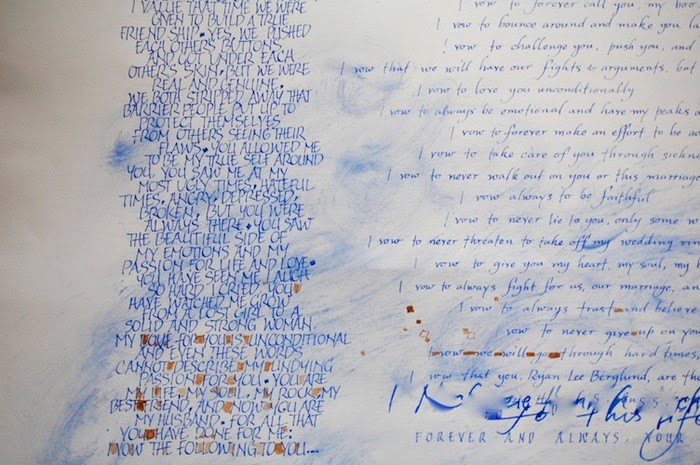 I VALUE THAT TIME WE WERE
GIVEN TO BUILD A TRUE
FRIENDSHIP. YES, WE PUSHED
EACH OTHERS BUTTONS
AND GOT UNDER EACH
OTHERS SKIN, BUT WE WERE
REAL AND GENUINE.
WE BOTH STRIPPED AWAY THAT
BARRIER PEOPLE PUT UP TO
PROTECT THEMSELVES
FROM OTHERS SEEING THEIR
FLAWS. YOU ALLOWED ME
TO BE MY TRUE SELF AROUND
YOU. YOU SAW ME AT MY
MOST UGLY TIMES, HATEFUL
TIMES, ANGRY, DEPRESSED,
BROKEN, BUT YOU WERE
ALWAYS THERE. YOU SAW
THE BEAUTIFUL SIDE OF
MY EMOTIONS AND MY
PASSION FOR LIFE AND LOVE.
YOU HAVE SEEN ME LAUGH
SO HARD I CRIED. YOU
HAVE WATCHED ME GROW
FROM A LOST GIRL TO A
SOLID AND STRONG WOMAN.
MY LOVE FOR YOU IS UNCONDITIONAL
AND EVEN THESE WORDS
CANNOT DESCRIBE MY UNDYING
PASSION FOR YOU. YOU ARE
MY LIFE, MY SOUL, MY ROCK, MY
BEST FRIEND, AND NOW YOU ARE
MY HUSBAND. FOR ALL THAT
YOU HAVE DONE FOR ME.
I VOW THE FOLLOWING TO YOU...
I vow to forever call you, my boo
I vow to bounce around and make you la
I vow to challenge you, push you, and
I vow that we will have our fights & arguments, but
I vow to love you unconditionally
I vow to always be emotional and have my peaks a
I vow to forever make an effort to be ac
I vow to take care of you through sickn
I vow to never walk out on you or this marriage
I vow always to be faithful
I vow to never lie to you, only some w
I vow to never threaten to take off my wedding rin
I vow to give you my heart, my soul, my l
I vow to always fight for us, our marriage, an
I vow to always trust and believe
I vow to never give up on you
I vow we will go through hard times
I vow that you, Ryan Lee Berglund, are th
I this
FOREVER AND ALWAYS, YOUR